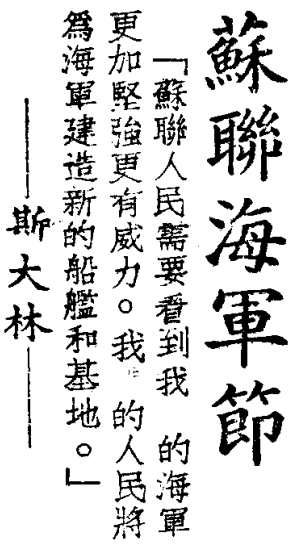 蘇聯海軍節
「蘇聯人民需要看到我 的海軍
更加堅強更有威力。我 的人民將
爲海軍建造新的船艦和基地。」
——斯大林——